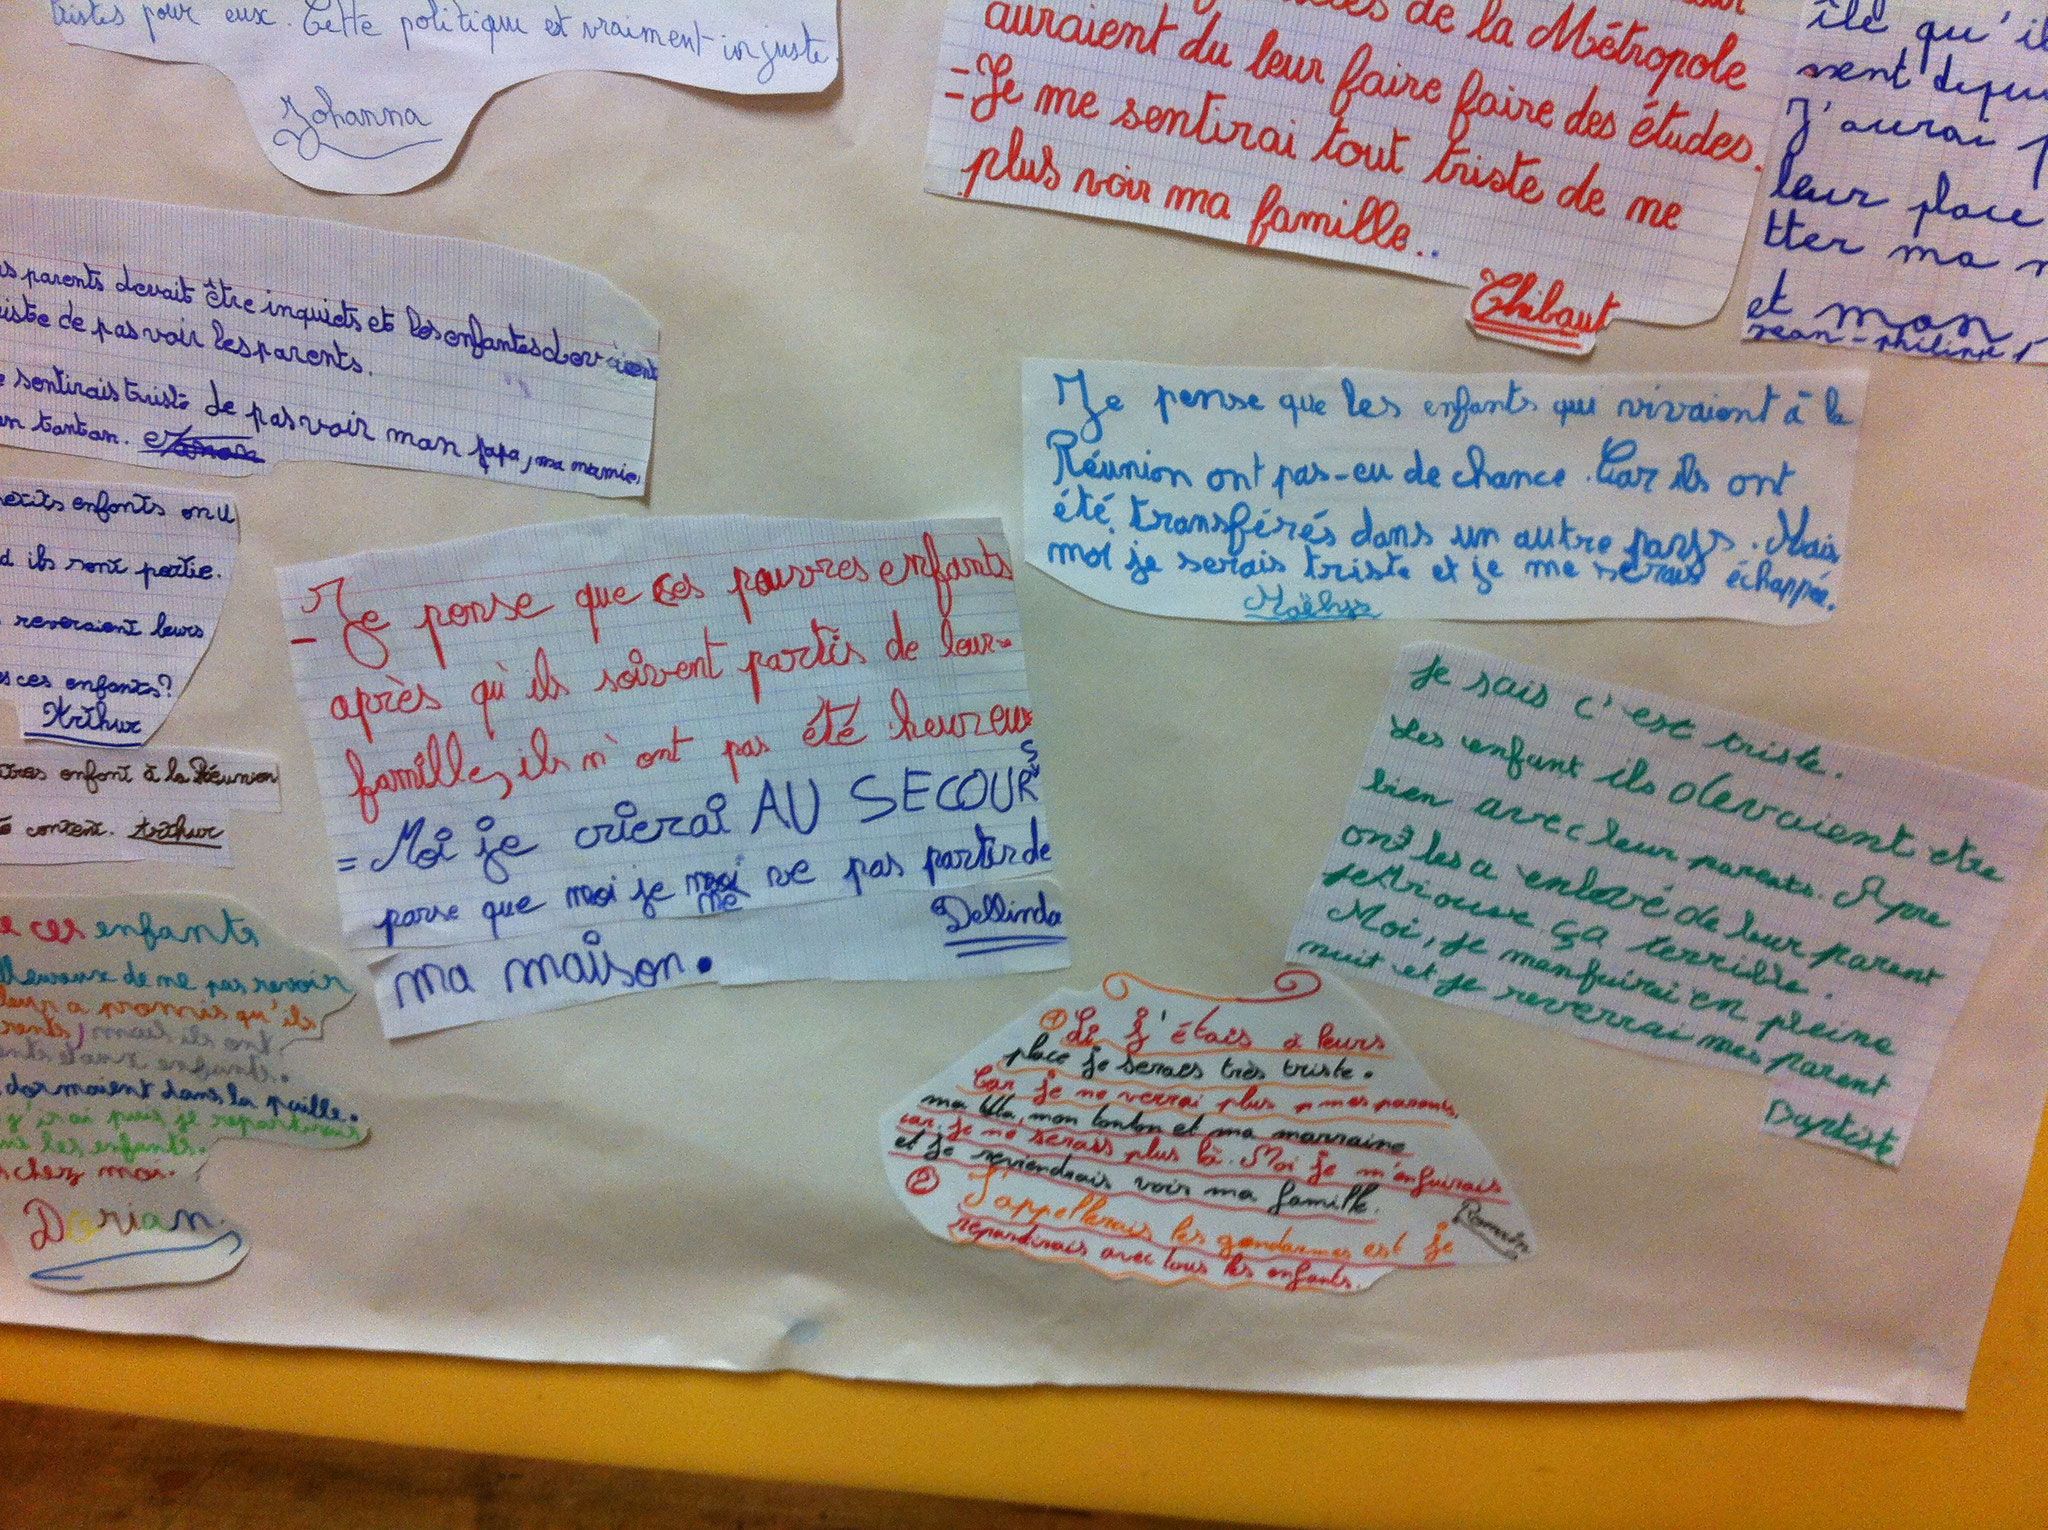 tristes pour eux. Cette politique et vraiment injuste.
Johanna
de la Métropole
auraient du leur faire faire des études.
- Je me sentirai tout triste de ne
plus voir ma famille..
Thibaut
île qu'il
vent depu
J'aurai p
leur place
tter ma m
et mon
Jean-philippe
s parents devait être inquiets et les enfantes devaient
iste de pas voir les parents.
e sentirais triste de pas voir mon papa, ma mamie,
n tantan.
Je pense que les enfants qui vivaient à la
Réunion ont pas-eu de chance. Car ils ont
été transférés dans un autre pays. Mais
moi je serais triste et je me serais échappé.
Maëlys
etits enfants on u
d ils sont partie.
reveraient leurs
s ces enfants?
Arthur
tres enfant à la Réunion
é content. Arthur
- Je pense que ces pauvres enfants
après qu'ils soivent partis de leur
famille, ils n'ont pas été heureux
= Moi je crierai AU SECOURS
parse que moi je me ve pas partir de
ma maison. Dellinda
Je sais c'est triste.
Les enfant ils devaient etre
bien avec leur parents. Apre
ont les a enlevé de leur parent
je trouve ça terrible.
Moi, je manfuirai en pleine
nuit et je reverrai mes parent
Baptiste
e ces enfants
lleureux de ne pas revoir
leur a promis qu'ils
rents, mais ils ont
dormaient dans la paille.
j'irai puis je repartirais
les enfants.
s chez moi.
Dorian.
① Si j'étais à leurs
place je serais très triste.
Car je ne verrai plus mes parents,
ma tata, mon tonton et ma marraine
car je ne serais plus là. Moi je m'enfuirais
et je reviendrais voir ma famille.
② J'appellerais les gendarmes est je
repartirais avec tous les enfants.
Romin